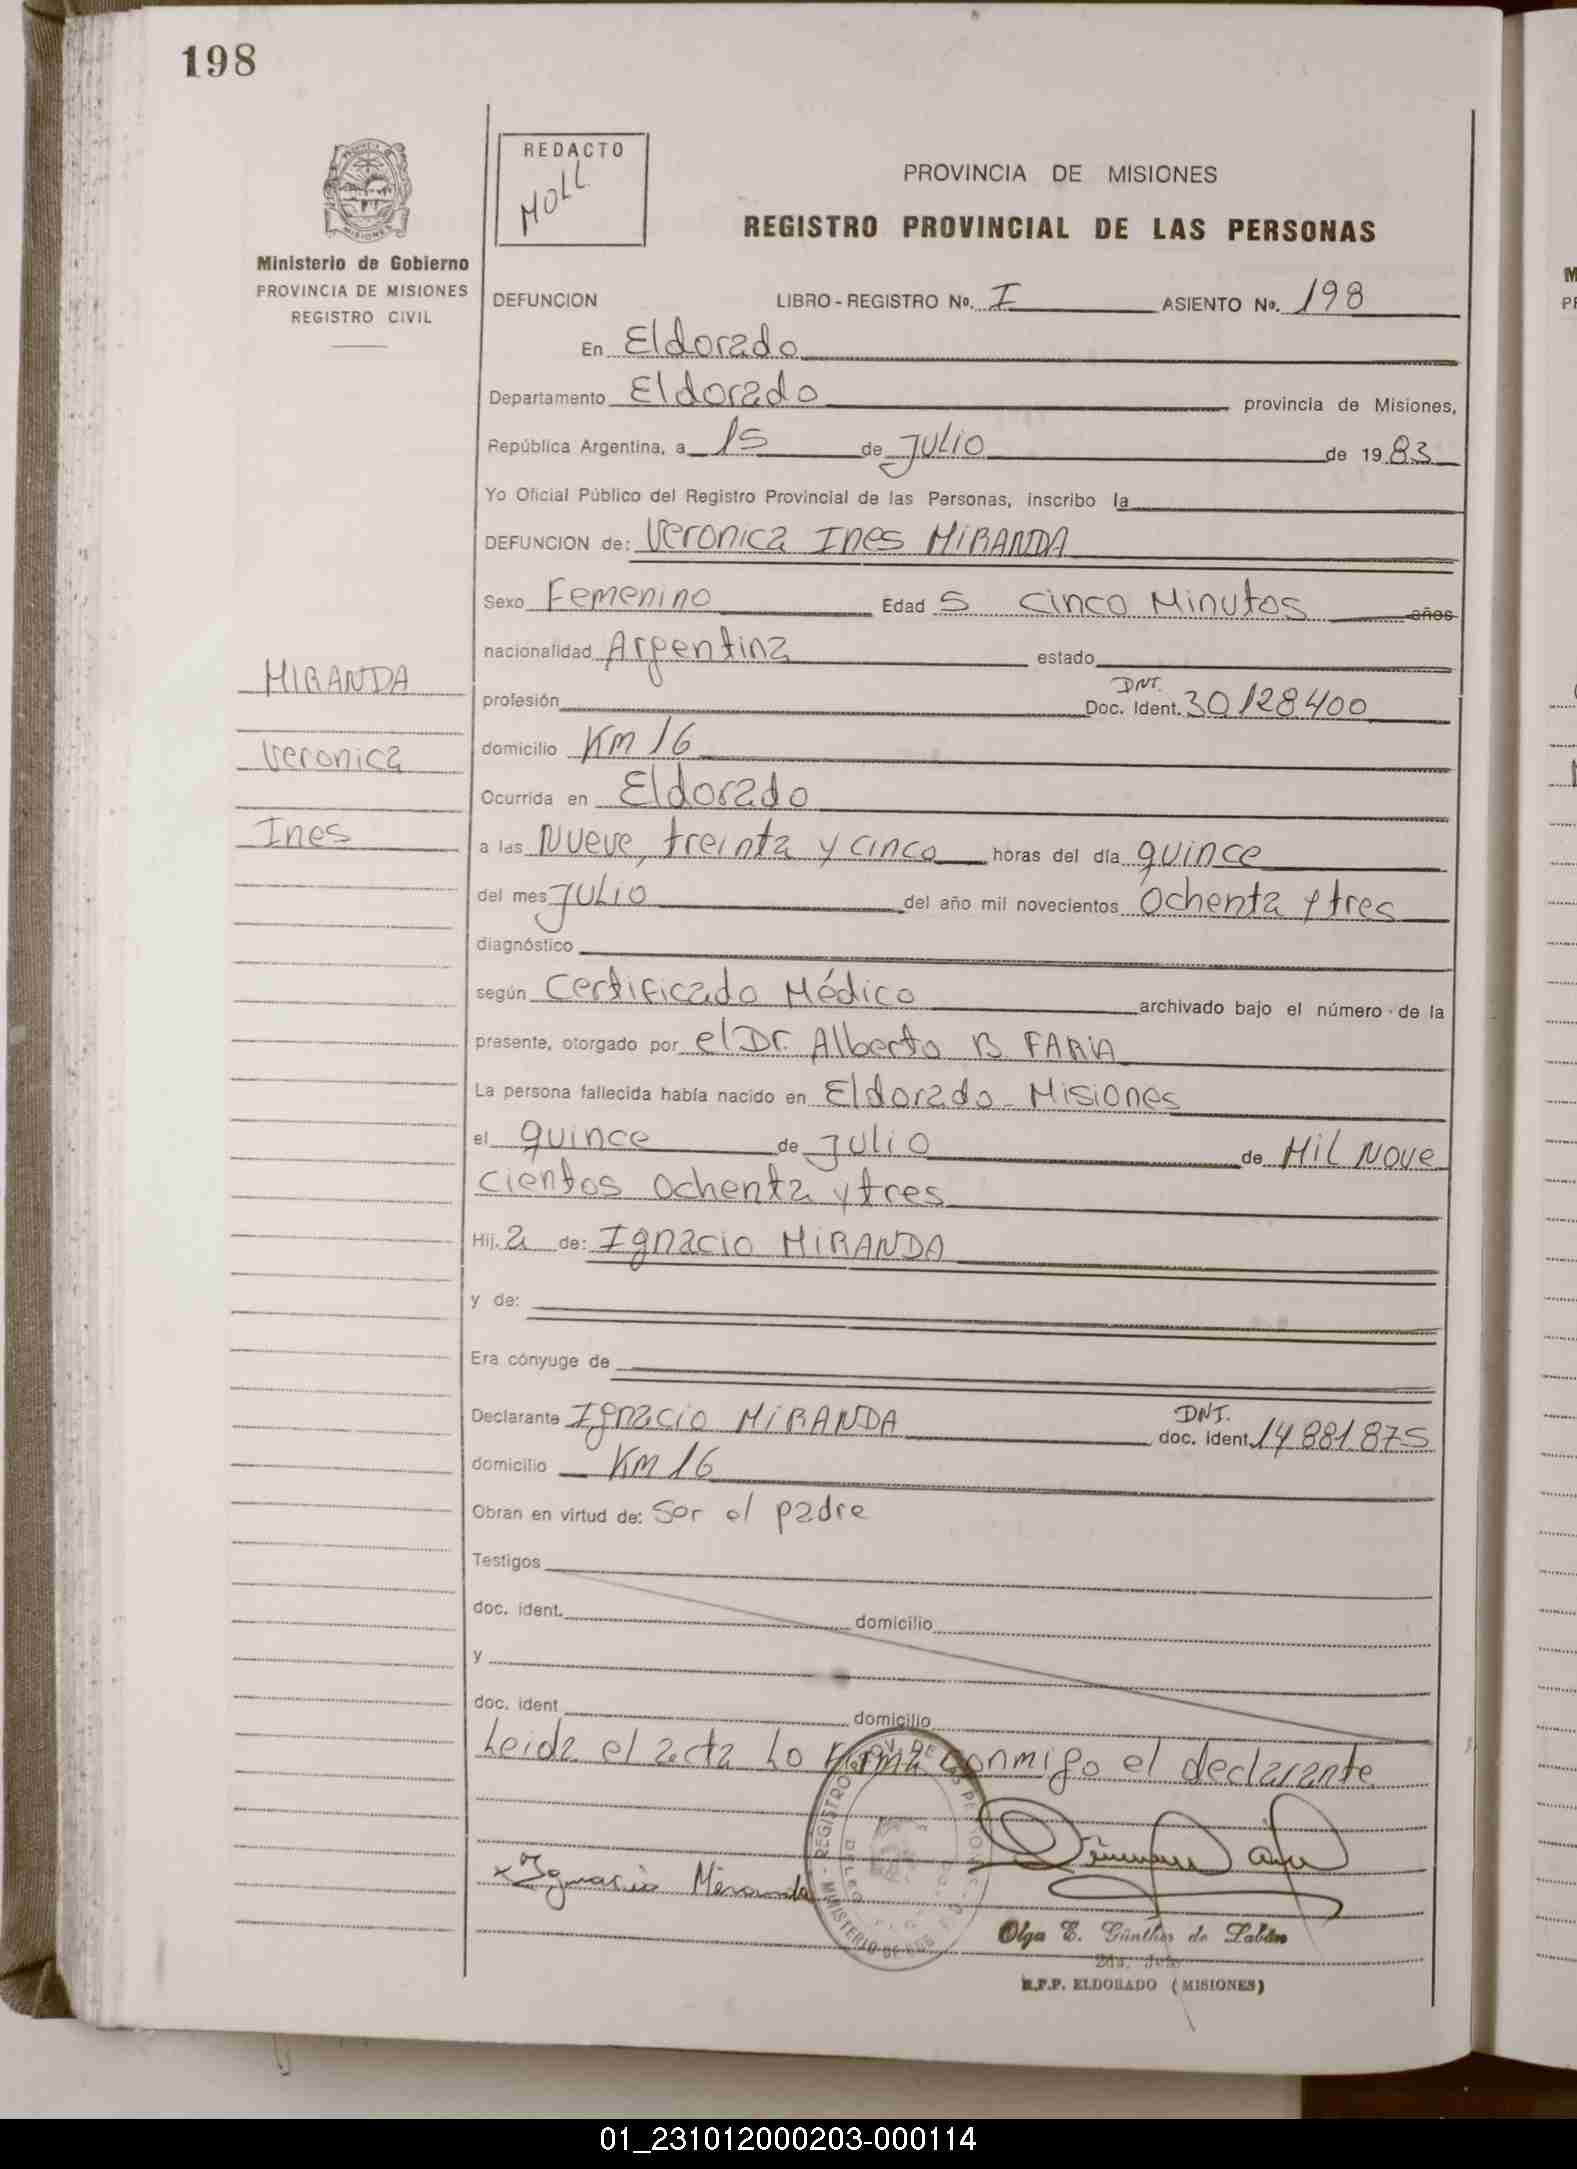 198
REDACTO
MOLL
PROVINCIA DE MISIONES
REGISTRO PROVINCIAL DE LAS PERSONAS
Ministerio de Gobierno
PROVINCIA DE MISIONES
REGISTRO CIVIL
DEFUNCION LIBRO - REGISTRO Nº. I ASIENTO Nº. 198
En Eldorado
Departamento Eldorado provincia de Misiones,
República Argentina, a 15 de JULIO de 1983
Yo Oficial Público del Registro Provincial de las Personas, inscribo la
DEFUNCION de: Veronica Ines MIRANDA
Sexo Femenino Edad 5 cinco Minutos años
nacionalidad Argentina estado
MIRANDA
profesión Doc. Ident. DNI. 30128400
Veronica
domicilio KM 16
Ocurrida en Eldorado
Ines
a las Nueve, treinta y cinco horas del día quince
del mes JULIO del año mil novecientos Ochenta y tres
diagnóstico
según Certificado Médico archivado bajo el número de la
presente, otorgado por el Dr. Alberto B FARIA
La persona fallecida había nacido en Eldorado - Misiones
el quince de julio de Mil Nove
cientos ochenta y tres
Hij. a de: Ignacio MIRANDA
y de:
Era cónyuge de
Declarante Ignacio MIRANDA DNI. doc. ident. 14 881 875
domicilio KM 16
Obran en virtud de: ser el padre
Testigos
doc. ident. domicilio
y
doc. ident domicilio
Leida el acta Lo firma conmigo el declarante
x Ignacio Miranda
Olga E. Günther de
R.P.P. ELDORADO (MISIONES)
01_231012000203-000114